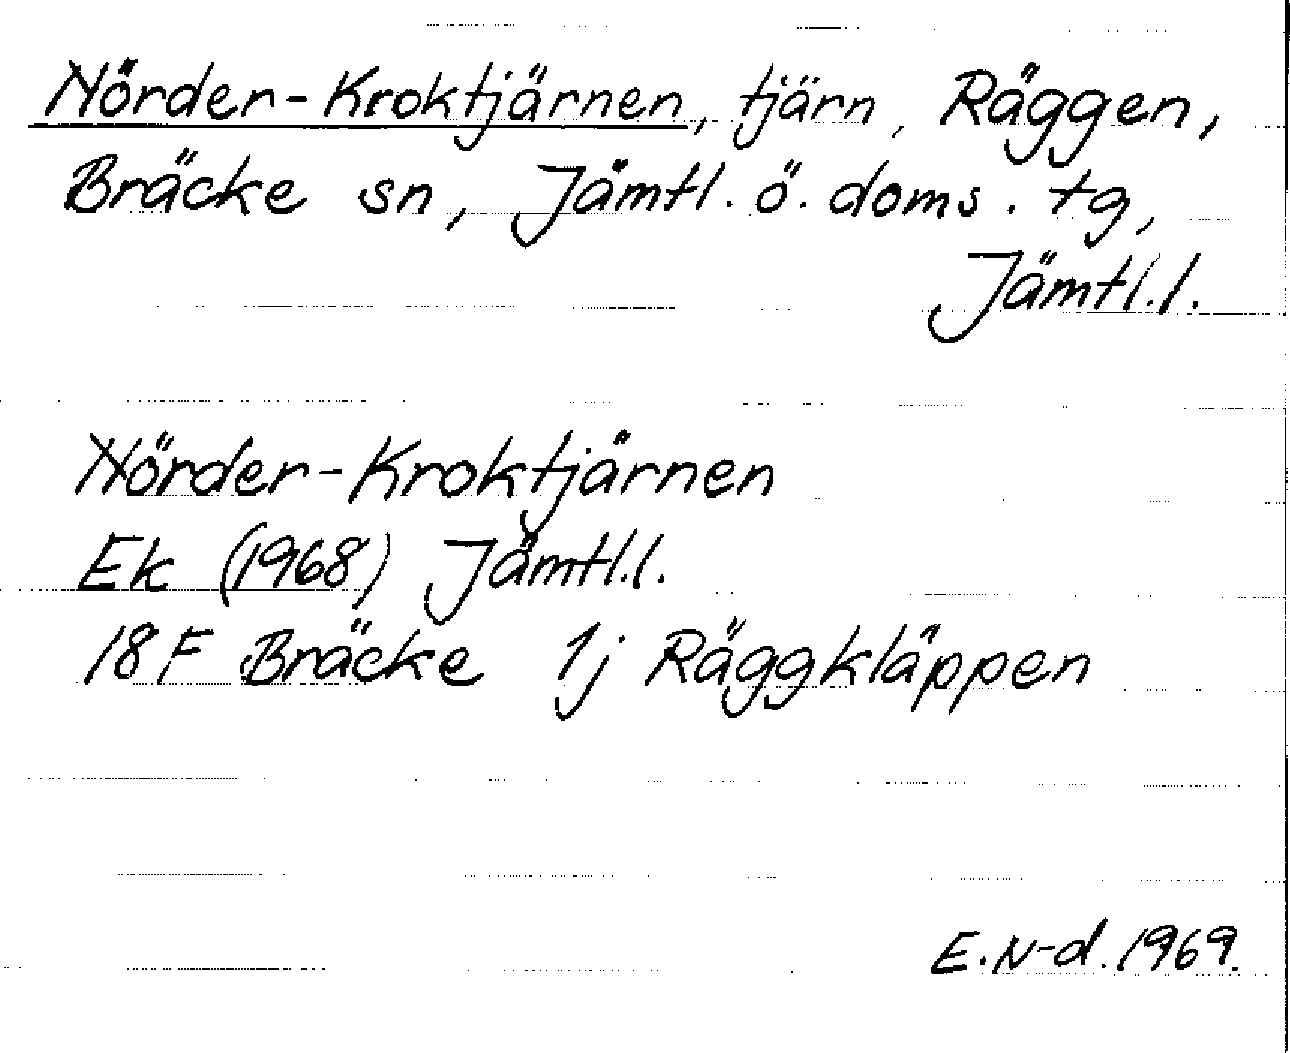 Nörder-Kroktjärnen, tjärn, Räggen,
Bräcke sn, Jämtl. ö. doms. tg,
Jämtl.l.
Nörder-Kroktjärnen
Ek (1968) Jämtl.l.
18 F Bräcke 1j Räggkläppen
E.N-d. 1969.